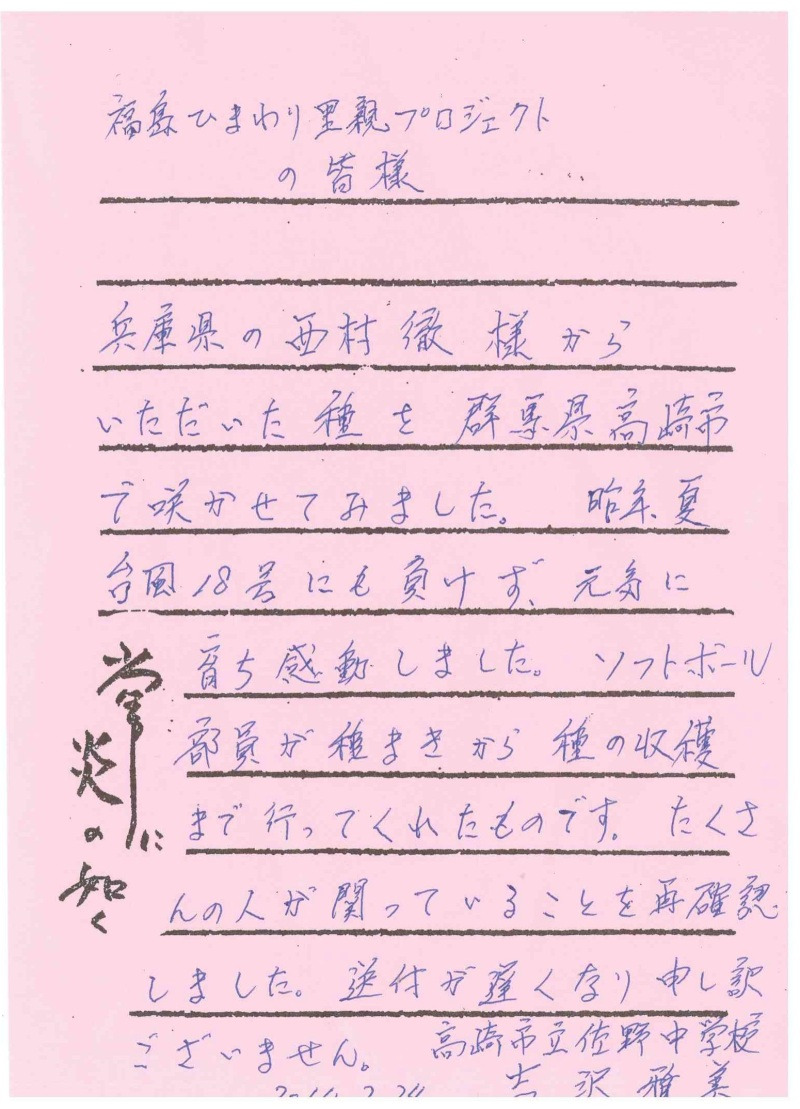 福島ひまわり里親プロジェクト
の皆様
兵庫県の西村徹様から
いただいた種を群馬県高崎市
で咲かせてみました。昨年、夏
台風18号にも負けず、元気に
育ち感動しました。ソフトボール
部員が種まきから種の収穫
まで行ってくれたものです。たくさ
んの人が関っていることを再確認
しました。送付が遅くなり申し訳
ございません。高崎市立佐野中学校
吉沢雅美
常に
炎の如く